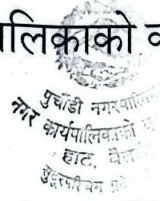 ालिकाको व
पुर्चौडी नगरपालिका
नगर कार्यपालिकाको
हाट, बै
सुदूरपश्चिम